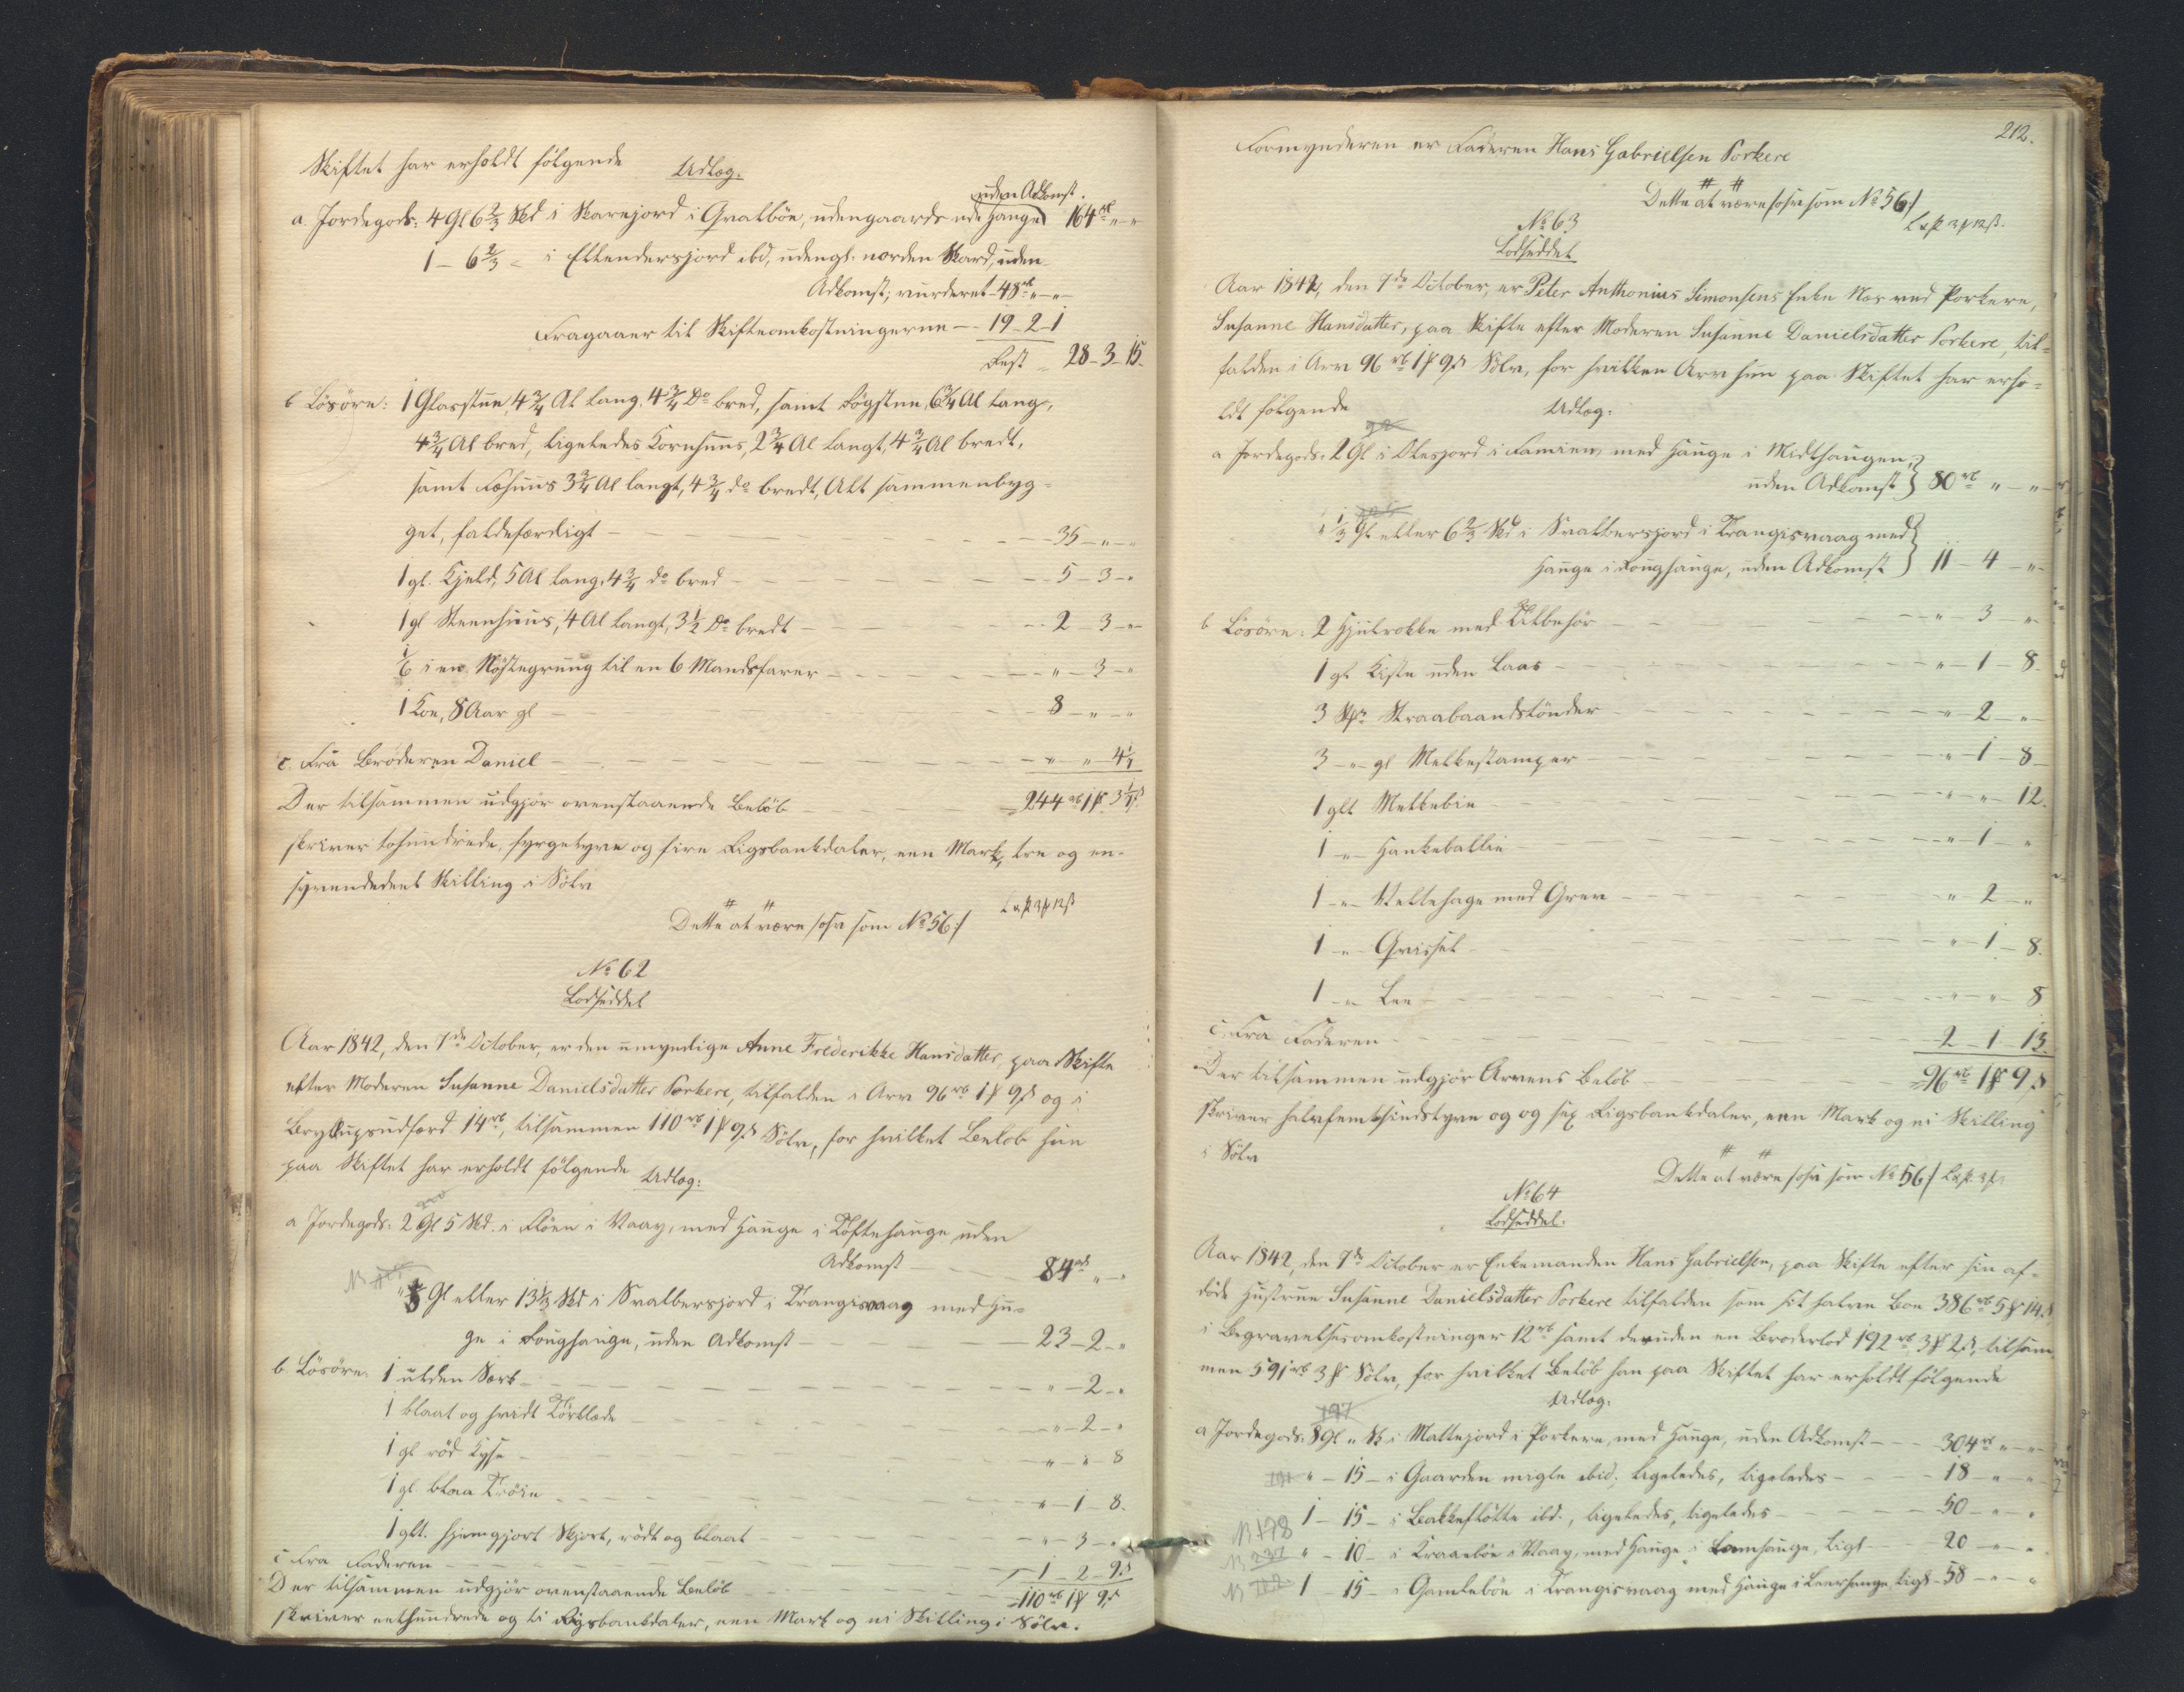 Skiftet har erholdt følgende
Udlæg:
uden Adkomst.
a. Jordegods: 4 Gl 6 2/3 Skd i Skarejord i Qvalböe, udengaards uden Hauge 164 rb „ „
1 – 6 2/3 – i Ettendersjord ibd, udengs. norden Skard, uden
Adkomst; vurderet 48 rb „ – „
Fragaaer til Skifteomkostningerne – 19 – 2 – 1
Rest „ 28 – 3 – 15.
b Lösöre: 1 Glasstue, 4 3/4 Al lang, 4 3/4 Do bred, samt Rögstue, 6 3/4 Al lang,
4 3/4 Al bred, ligeledes Kornhuus, 2 3/4 Al langt, 4 3/4 Al bredt,
samt Fæhuus 3 3/4 Al langt, 4 3/4 do bredt, Alt sammenbyg=
get, faldefærdigt – 35 – „ – „
1 gl. Hjeld, 5 Al lang, 4 3/4 do bred – 5 – 3 – „
1 gl Steenhuus, 4 Al langt, 3 1/2 Do bredt – 2 – 3 – „
1/6 i en Nøstegrung til en 6 Mandsfarer – „ – 3 – „
1 Koe, 8 Aar gl – 8 – „ – „
c. Fra Broderen Daniel – „ – „ – 4 1/4
Der tilsammen udgjör ovenstaaende Belöb – 244 rb 1 ꝟ 3 1/4 ß.
skriver tohundrede, fyrgetyve og fire Rigsbankdaler, een Mark, tre og en=
syvendedeel Skilling i Sölv
Dette at være sosv som No 56 /
No 62
Lodseddel
Aar 1842, den 7de October, er den umyndige Anne Frederikke Hansdatter, paa Skifte
efter Moderen Susanne Danielsdatter Porkere, tilfalden i Arv 96 rb 1 ꝟ 9 ß og i
Bryllupsudfærd 14 rb, tilsammen 110 rb 1 ꝟ 9 ß Sölv, for hvilket Belöb hun
paa Skiftet har erholdt følgende Udlæg:
a Jordegods: 2 Gl 5 Skd. i Flöen i Vaag, med Hauge i Toftehauge, uden
Adkomst – 84 rb „ – „
Gl eller 13 1/3 Skd i Qvalbersjord i Trangisvaag med Hau=
ge i Roughauge, uden Adkomst – 23 – 2 – „
b Lösöre: 1 ulden Særk – „ – 2 – „
1 blaat og hvidt Törklæde – „ – 2 – „
1 gl röd Kyse – „ – „ – 8
1 gl. blaa Tröie – „ – 1 – 8.
1 glt. hjemgjort Skjört, rödt og blaat – „ – 3 – „
c Fra Faderen – 1 – 2 – 9 ß
Der tilsammen udgjör ovenstaaende Belöb – 110 rb 1 ꝟ 9 ß
skriver eethundrede og ti Rigsbankdaler, een Mark og ni Skilling i Sölv.
212.
Formynderen er Faderen Hans Gabrielsen Porkere
Dette at være sosv som No 56 /
No 63
Lodseddel
Aar 1842, den 7de October, er Peter Anthonius Simonsens Enke Næs ved Porkere,
Susanne Hansdatter, paa Skifte efter Moderen Susanne Danielsdatter Porkere, til=
falden i Arv 96 rb 1 ꝟ 9 ß Sölv, for hvilken Arv hun paa Skiftet har erho=
ldt følgende Udlæg:
a Jordegods: 2 Gl i Olesjord i Famien, med Hauge i Midthaugen,
uden Adkomst } 80 rb „ – „
1/3 Gl eller 6 2/3 Skd i Qvalbersjord i Trangisvaag med
Hauge i Roughauge, uden Adkomst } 11 – 4 – „
b Lösöre: 2 Hjulrokke med Tilbehör – „ – 3 – „
1 gl Kiste uden Laas – „ – 1 – 8.
3 Stk. Straabaandstönder – „ – 2 – „
3 – „ – gl Melkestamper – „ – 1 – 8
1 glt Melkebie – „ – „ – 12.
1 – „ – Hankeballie – „ – 1 – „
1 – „ – Veltehage med Grev – „ – 2 – „
1 – „ – Qvisset – „ – 1 – 8.
1 – „ – Lee – „ – „ – 8
c Fra Faderen – 2 – 1 – 13.
Der tilsammen udgjör Arvens Belöb – 96 rb 1 ꝟ 9 ß
skriver halvfemtesindstyve og og sex Rigsbankdaler, een Mark og ni Skilling
i Sölv
Dette at være sosv som No 56 /
No 64
Lodseddel.
Aar 1842, den 7de October er Enkemanden Hans Gabrielsen, paa Skifte efter sin af=
döde Hustrue Susanne Danielsdatter Porkere tilfalden som sit halve Boe 386 rb 5 ꝟ 14 ß,
i Begravelsesomkostninger 12 rb samt desuden en Broderlod 192 rb 3 ꝟ 2 ß, tilsam=
men 591 rb 3 ꝟ Sölv, for hvilket Belöb han paa Skiftet har erholdt følgende
Udlæg:
197
a Jordegods: 8 Gl „ Sk i Mattejord i Porkere, med Hauge, uden Adkomst – 304 rb „ – „
191 „ – 15 – i Gaarden migle ibid; ligeledes, ligeledes – 18 – „ – „
1 – 15 – i Bakkestötte ibd., ligeledes, ligeledes – 50 – „ – „
N 178
„ – 10 – i Kraaeböe i Vaag, med Hauge i Lamhauge, ligl – 20 – „ – „
1 – 15 – i Gamleböe i Trangisvaag med Hauge i Leerhauge, ligl – 58 – „ – „